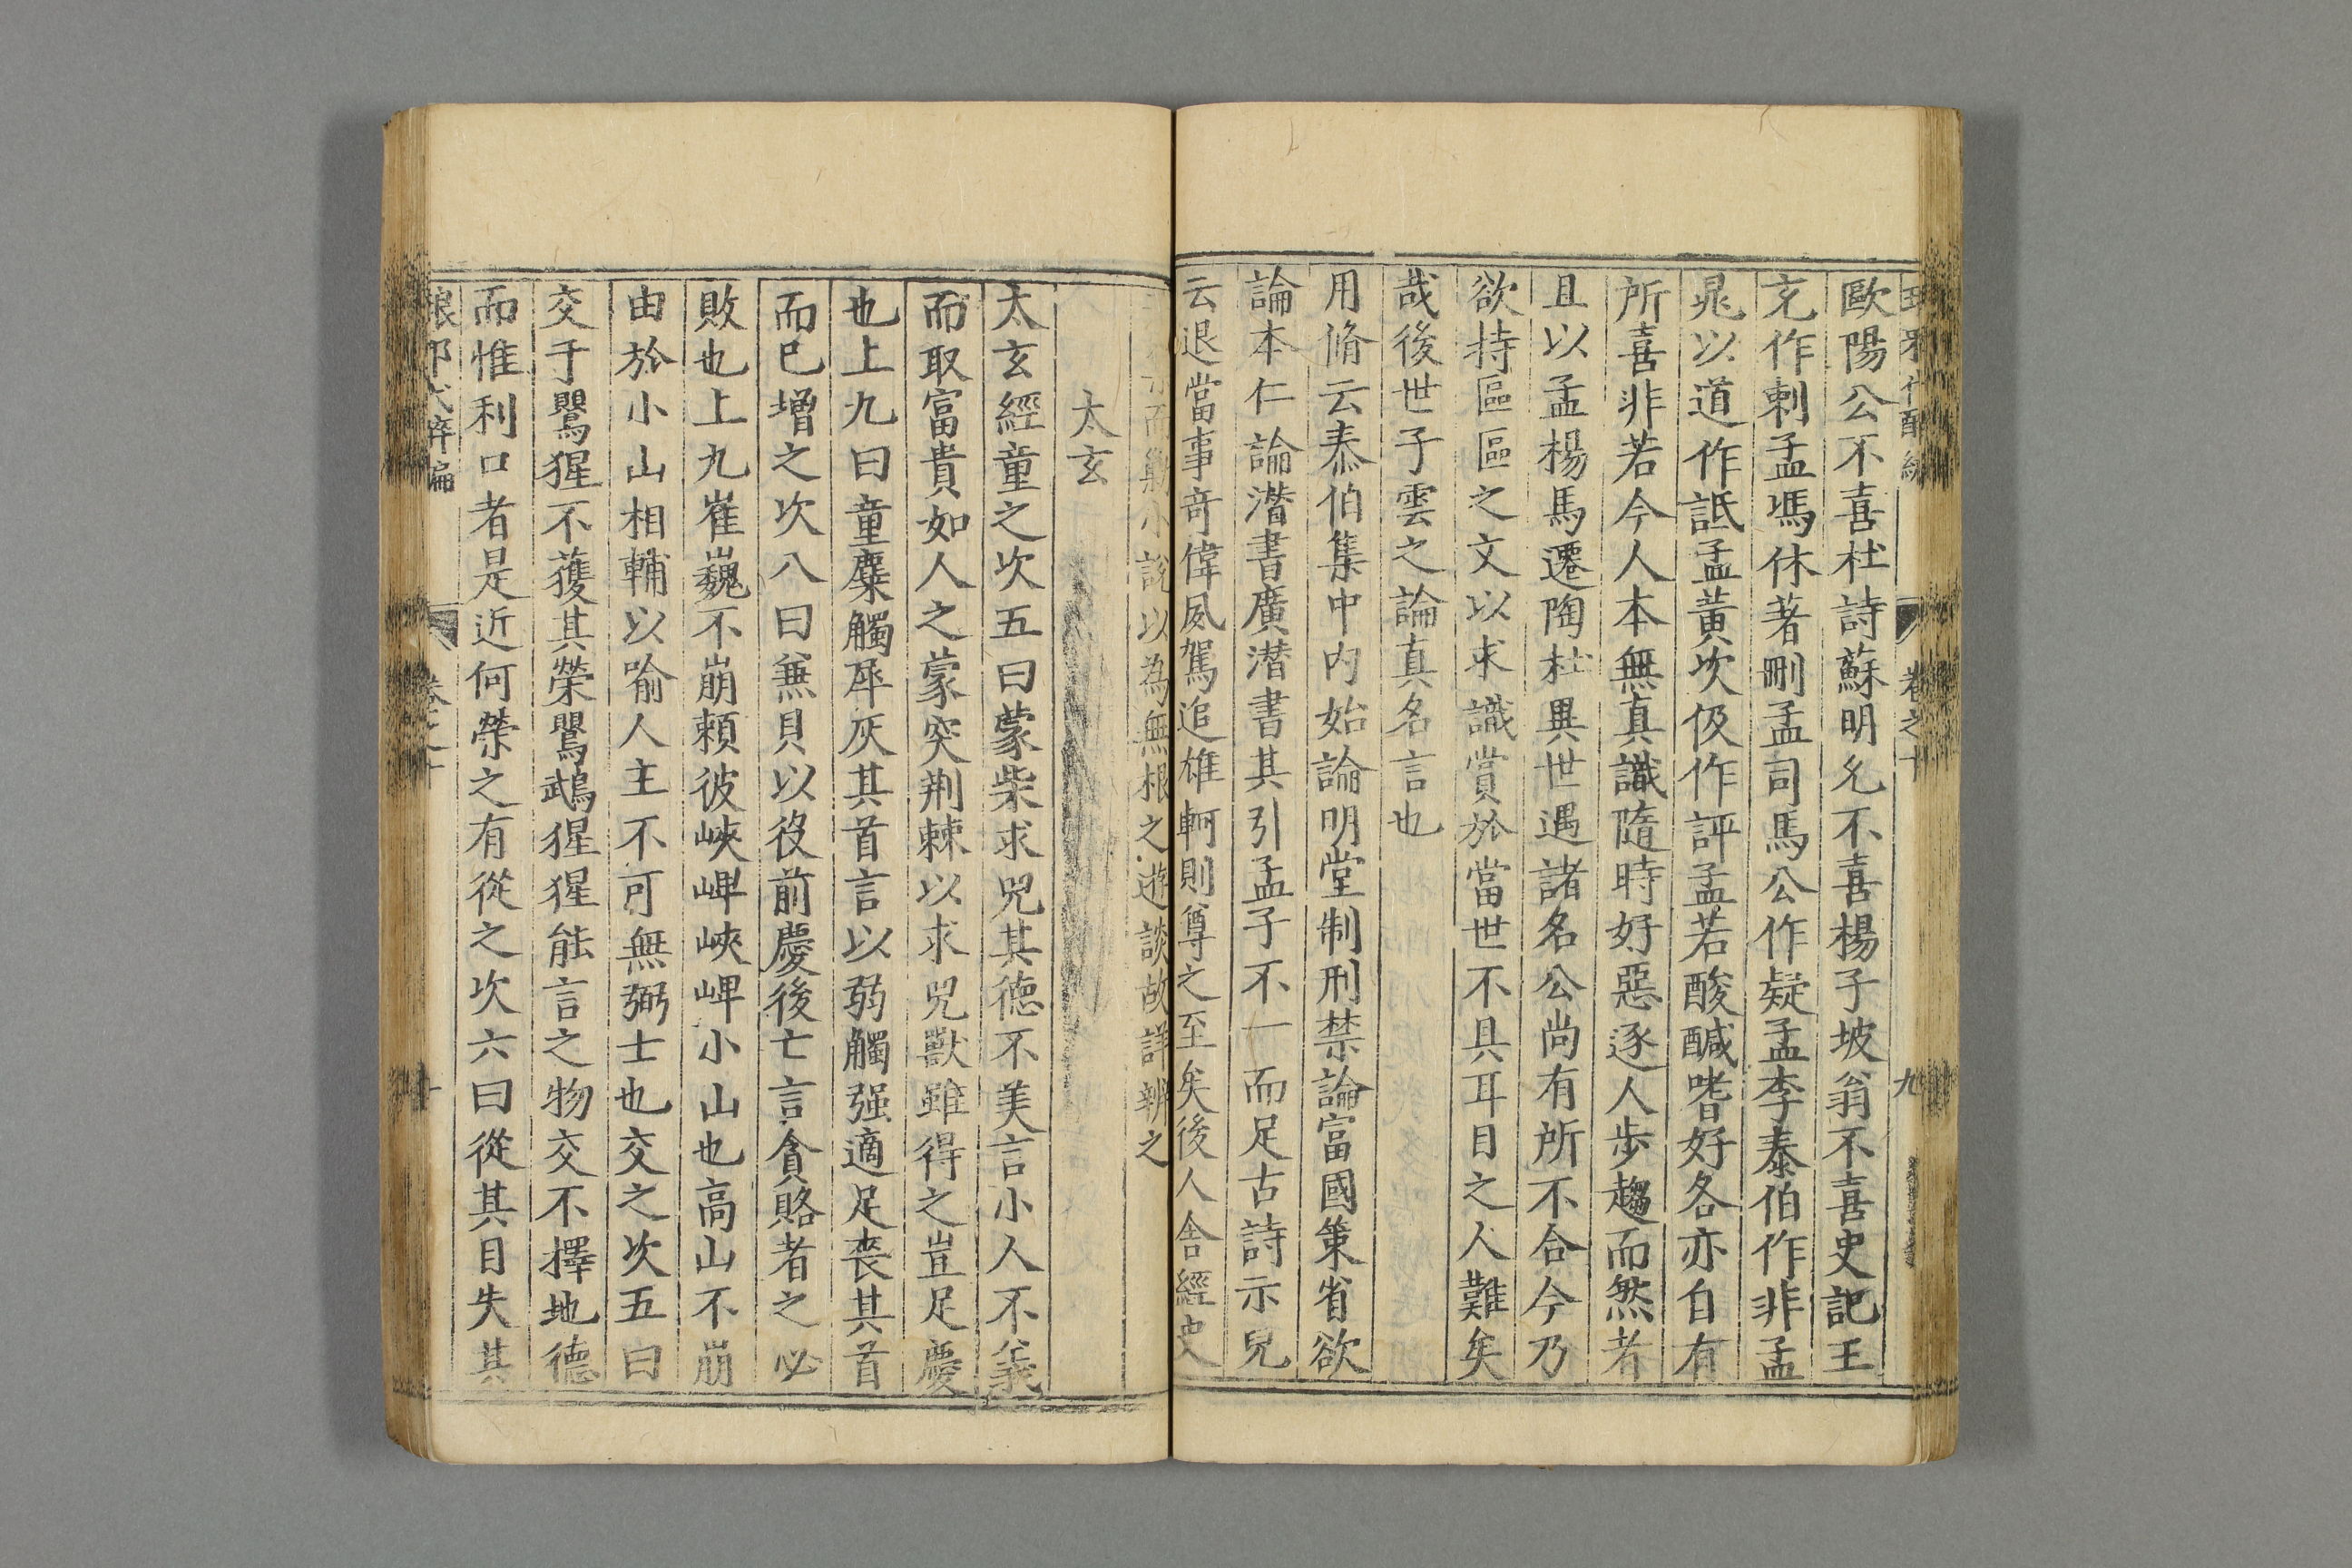 歐陽公不喜杜詩蘇明允不喜楊子坡翁不喜史記王
充作刺孟馮休著刪孟司馬公作疑孟李泰伯作非孟
晁以道作詆孟黃次伋作評孟若酸醎嗜好各亦自有
所喜非若今人本無真識隨時好惡逐人步趨而然者
且以孟楊馬遷陶杜異世遇諸名公尚有所不合今乃
欲持區區之文以求識賞於當世不具耳目之人難矣
哉後世子雲之論真名言也
用脩云泰伯集中内始論明堂制刑禁論富國策省欲
論本仁論潛書廣潛書其引孟子不一而足古詩示兒
云退當事奇偉夙駕追雄軻則尊之至矣後人舍經史
而 小說以為無根之遊談故詳辨之
太玄
太玄經童之次五曰蒙柴求兕其德不美言小人不義
而取富貴如人之蒙突荆棘以求兕獸雖得之豈足慶
也上九曰童麋觸犀灰其首言以弱觸强適足喪其首
而已增之次八曰兼貝以役前慶後亡言貪賂者之必
敗也上九崔巍不崩賴彼峽崥峽崥小山也高山不崩
由於小山相輔以喻人主不可無弼士也交之次五曰
交于鸎猩不獲其榮鸎䳇猩猩能言之物交不擇地德
而惟利口者是近何榮之有從之次六曰從其目失其